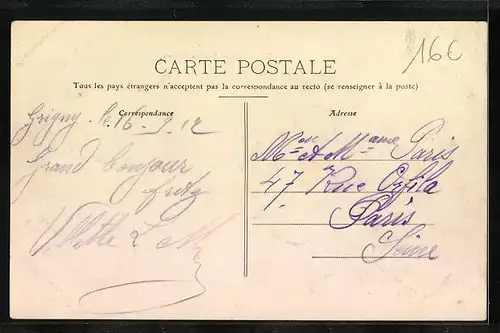 16C
CARTE POSTALE
Tous les pays étrangers n'acceptent pas la correspondance au recto (se renseigner à la poste)
Correspondance
Adresse
Grigny le 16-5-12
Grand bonjour
Mon et Mame Paris
47 Rue Orfila
Paris
Seine